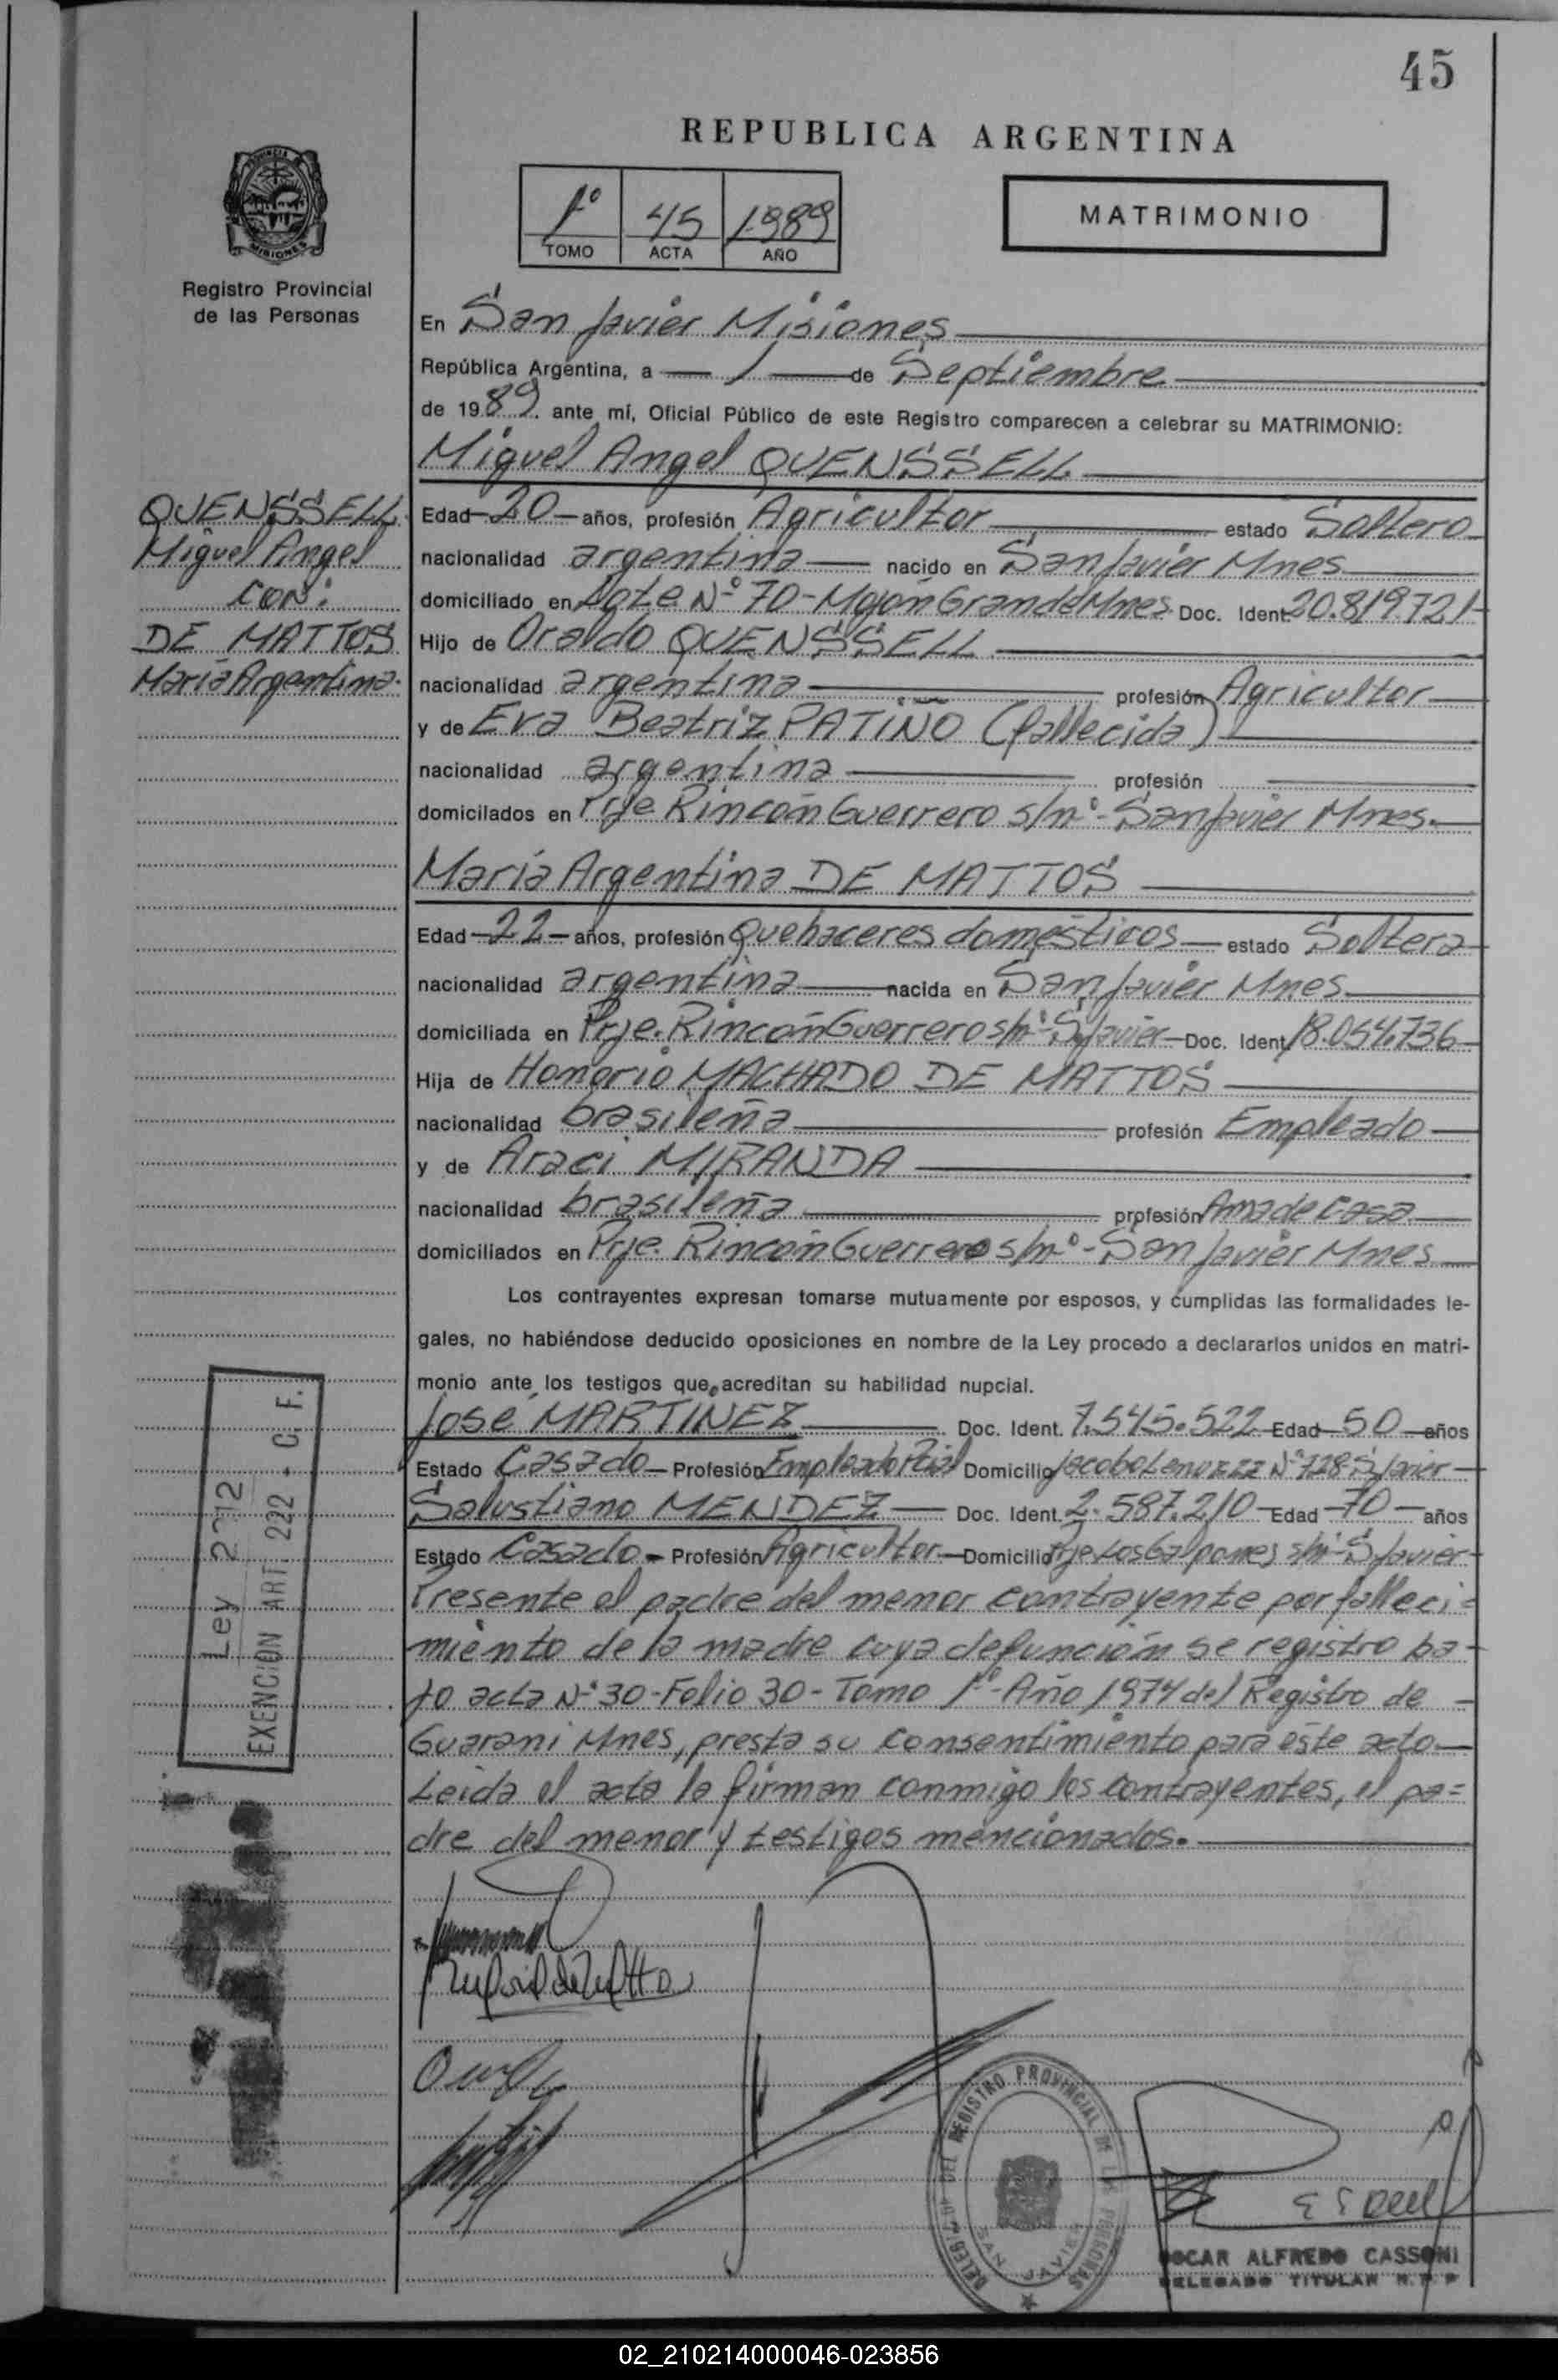 45
REPUBLICA ARGENTINA
1º 45 1989
TOMO ACTA AÑO
MATRIMONIO
PROVINCIA DE
MISIONES
Registro Provincial
de las Personas
En San Javier Misiones
República Argentina, a 1 de Septiembre
de 1989. ante mí, Oficial Público de este Registro comparecen a celebrar su MATRIMONIO:
Miguel Angel QUENSSELL
QUENSSELL
Miguel Angel
CON:
DE MATTOS
María Argentina.
Edad 20 años, profesión Agricultor estado Soltero
nacionalidad argentina nacido en San Javier Mnes
domiciliado en Lote Nº 70 - Mojón Grande Mnes. Doc. Ident. 20.819.721
Hijo de Oraldo QUENSSELL
nacionalidad argentina profesión Agricultor
y de Eva Beatriz PATIÑO (fallecida)
nacionalidad argentina profesión
domicilados en Prje Rincón Guerrero s/nº - San Javier Mnes.
María Argentina DE MATTOS
Edad 22 años, profesión Quehaceres domésticos estado Soltera
nacionalidad argentina nacida en San Javier Mnes.
domiciliada en Prje. Rincón Guerrero s/nº - S. Javier Doc. Ident. 18.054.736
Hija de Honorio MACHADO DE MATTOS
nacionalidad brasileña profesión Empleado
y de Araci MIRANDA
nacionalidad brasileña profesión Ama de Casa
domiciliados en Prje. Rincón Guerrero s/nº - San Javier Mnes
Los contrayentes expresan tomarse mutuamente por esposos, y cumplidas las formalidades le-
gales, no habiéndose deducido oposiciones en nombre de la Ley procedo a declararlos unidos en matri-
monio ante los testigos que acreditan su habilidad nupcial.
José MARTINEZ Doc. Ident. 7.545.522 Edad 50 años
Estado Casado Profesión Empleado Pcial Domicilio Jacobo Nº 728 S. Javier
Salustiano MENDEZ Doc. Ident. 2.587.210 Edad 70 años
Estado Casado - Profesión Agricultor Domicilio Prje Los Galpones s/nº S. Javier
Presente el padre del menor contrayente por falleci-
miento de la madre cuya defunción se registro ba-
jo acta Nº 30 - Folio 30 - Tomo 1º - Año 1974 del Registro de
Guarani Mnes, presta su consentimiento para este acto.
Leida el acta la firman conmigo los contrayentes, el pa=
dre del menor y testigos mencionados.
Ley 2212
EXENCION ART. 222 - C. F.
DEL REGISTRO PROVINCIAL DE LAS PERSONAS
SAN JAVIER
OSCAR ALFREDO CASSONI
DELEGADO TITULAR R.P.P
02_210214000046-023856